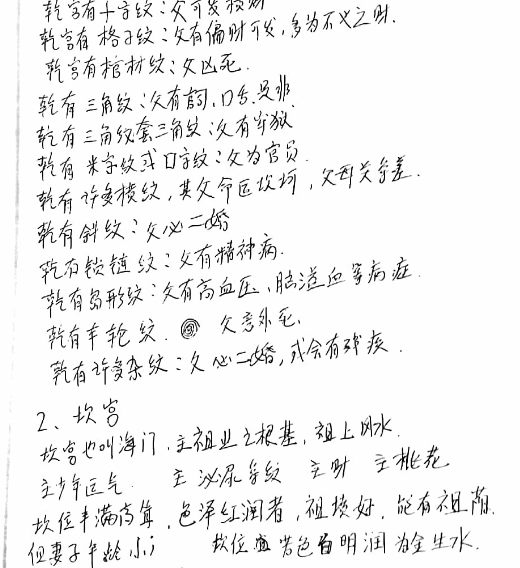 乾宫有十字纹:父可发横财
乾宫有格子纹:父有偏财可发,多为不义之财.
乾宫有棺材纹:父凶死.
乾有三角纹:父有官司,口舌是非
乾有三角纹套三角纹:父有牢狱
乾有米字纹或口字纹:父为官员.
乾有许多横纹,其父命运坎坷,父母关系差.
乾有斜纹:父必二婚
乾有锁链纹:父有精神病.
乾有岛形纹:父有高血压、脑溢血等病症.
乾有车轮纹. 父意外死.
乾有许多杂纹:父必二婚,或会有残疾.
2、坎宫
坎宫也叫海门.主祖业之根基,祖上风水.
主少年运气. 主泌尿系纹 主财 主桃花
坎位丰满高耸,色泽红润者,祖坟好,能有祖荫.
但妻子年龄小 坎位 若色白明润为金生水.